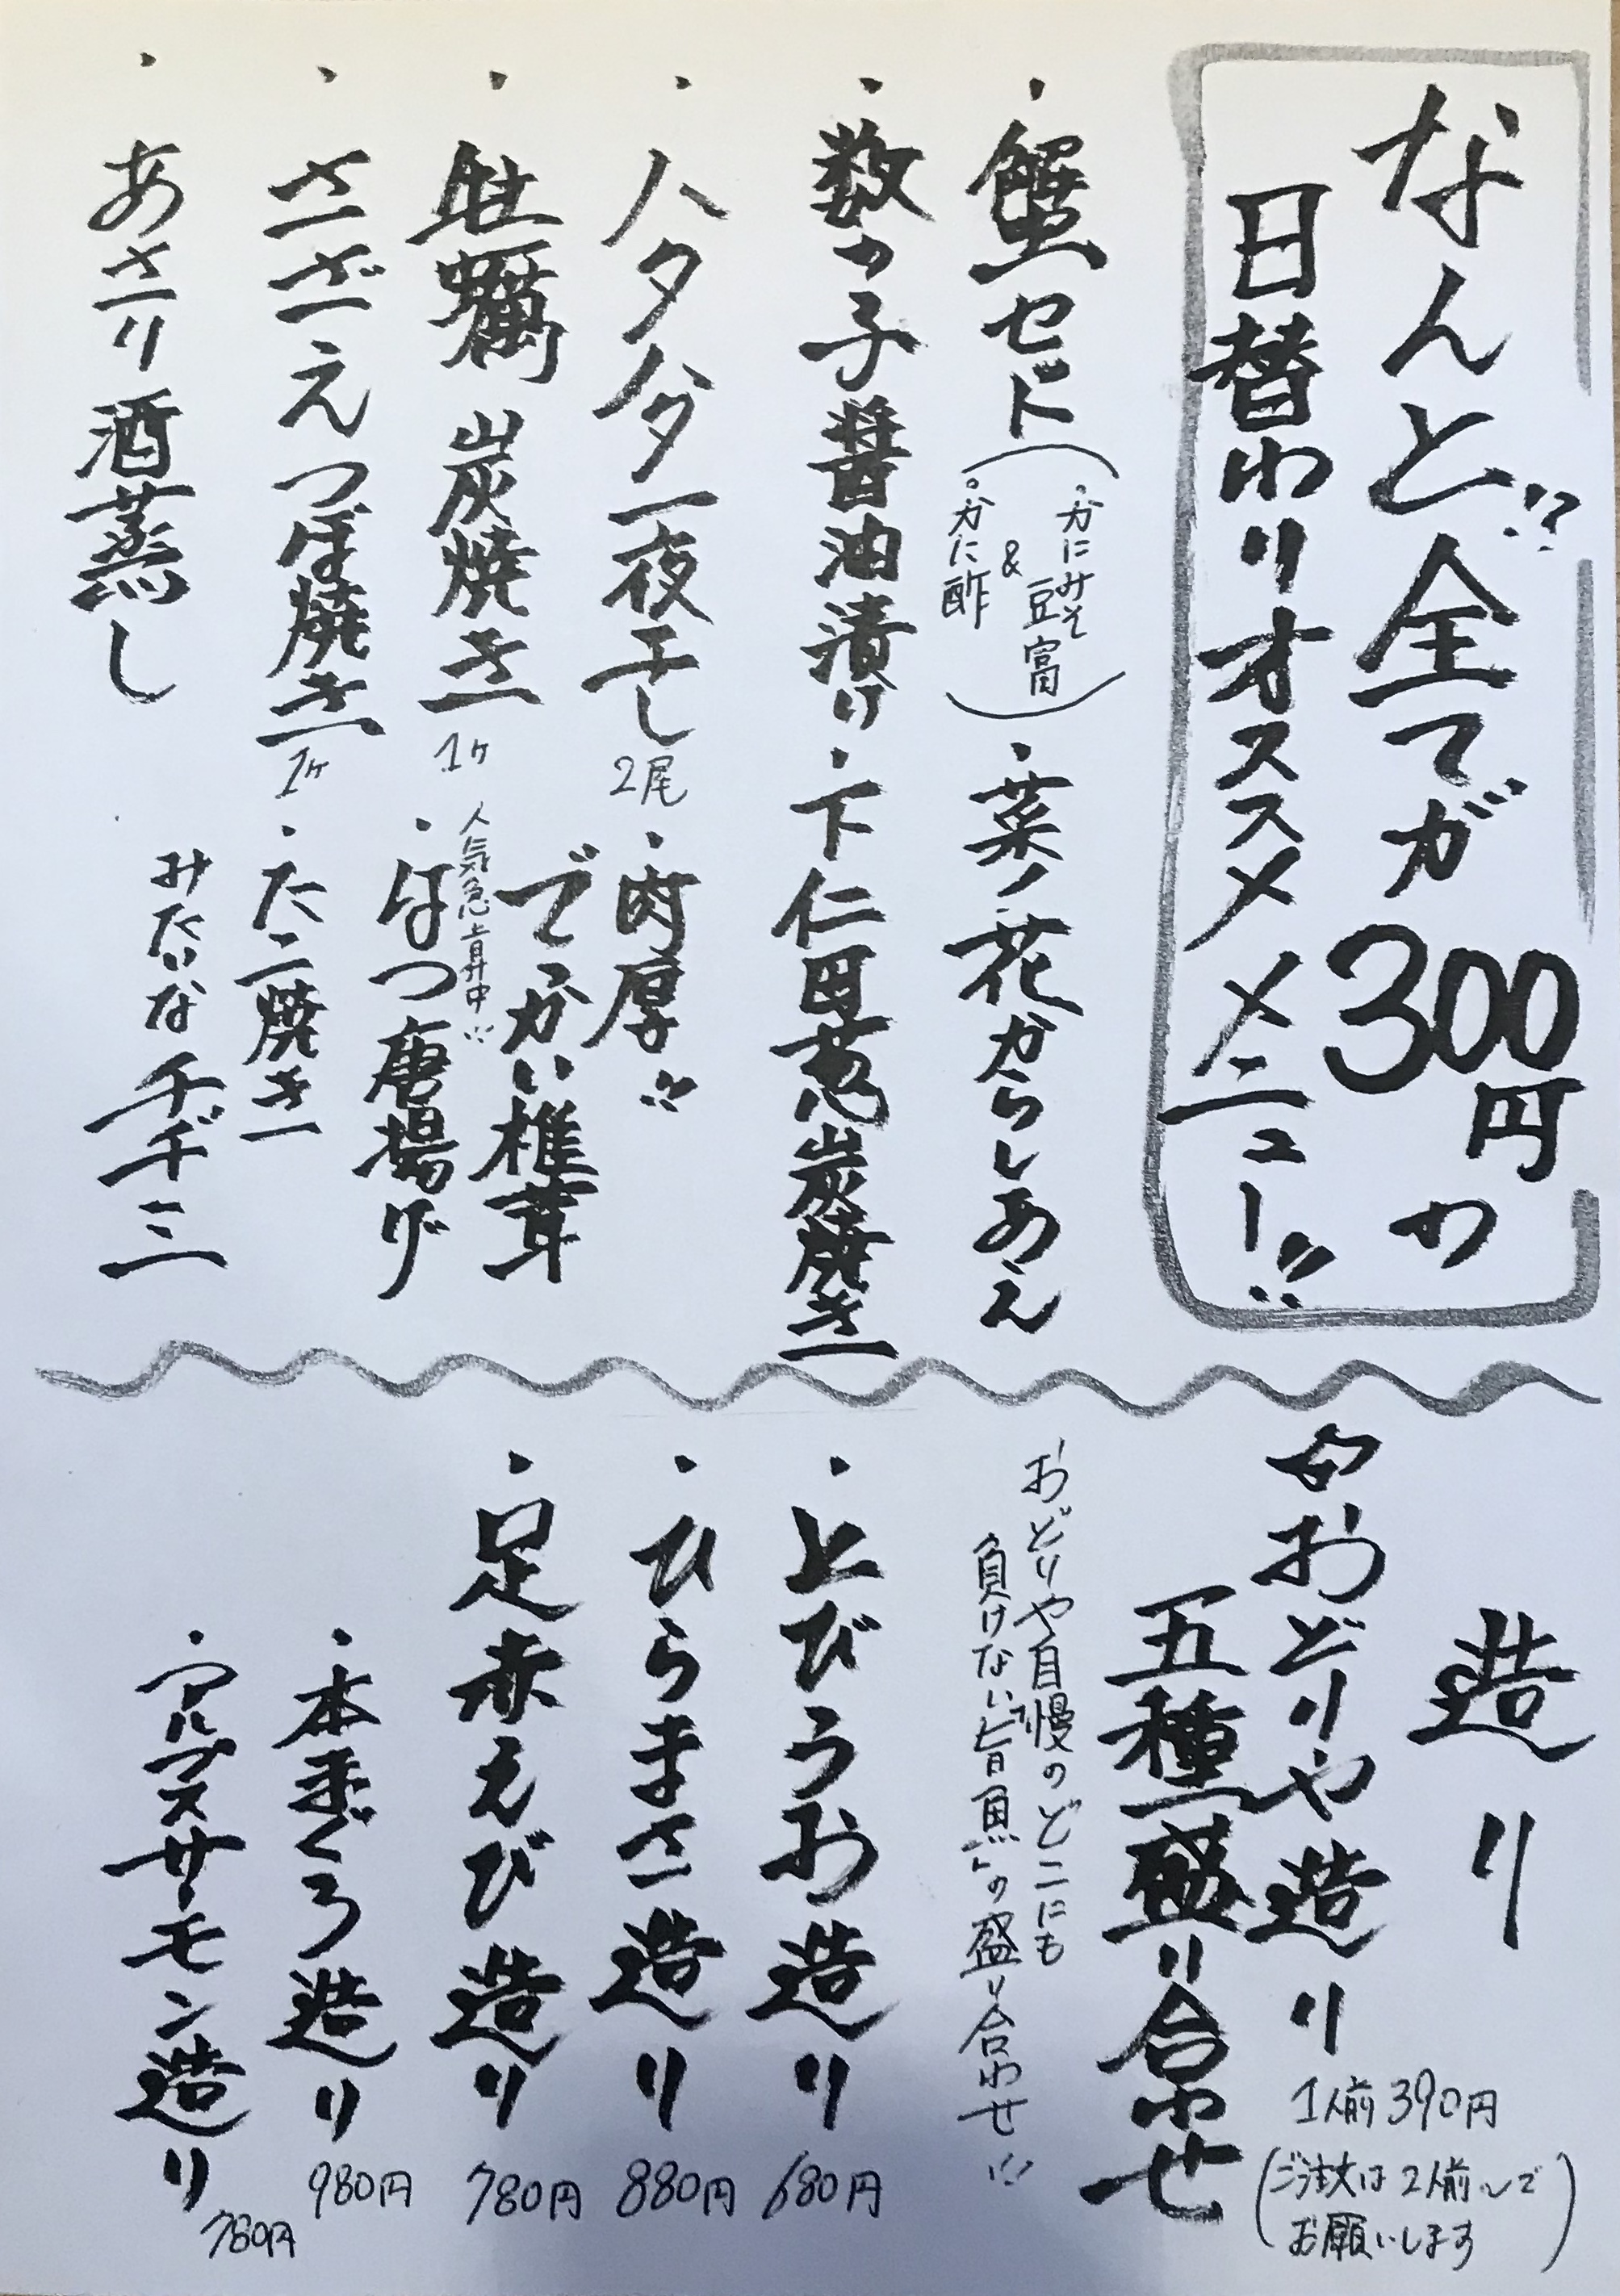 なんと‼全てガ300円の
日替わりオススメメニュー‼
・蟹セット
(・かにみそ豆富
&
・かに酢)
・菜ノ花からしあえ
・数の子醤油漬け
・下仁田葱炭焼き
・ハタハタ一夜干し 2尾
・肉厚‼
でっかい椎茸
・牡蠣 炭焼き 1ヶ
人気急上昇中‼
・はつ唐揚げ
・さざえつぼ焼き 1ヶ
・たこ焼き
みたいなチヂミ
・あさり酒蒸し
造り
おどりや造り
五種盛り合わせ
1人前390円
(ご注文は2人前〜で
お願いします)
おどりや自慢のどこにも
負けない「旨魚」の盛り合わせ‼
・とびうお造り 680円
・ひらまさ造り 880円
・足赤えび造り 780円
・本まぐろ造り 980円
・アルプスサーモン造り 780円